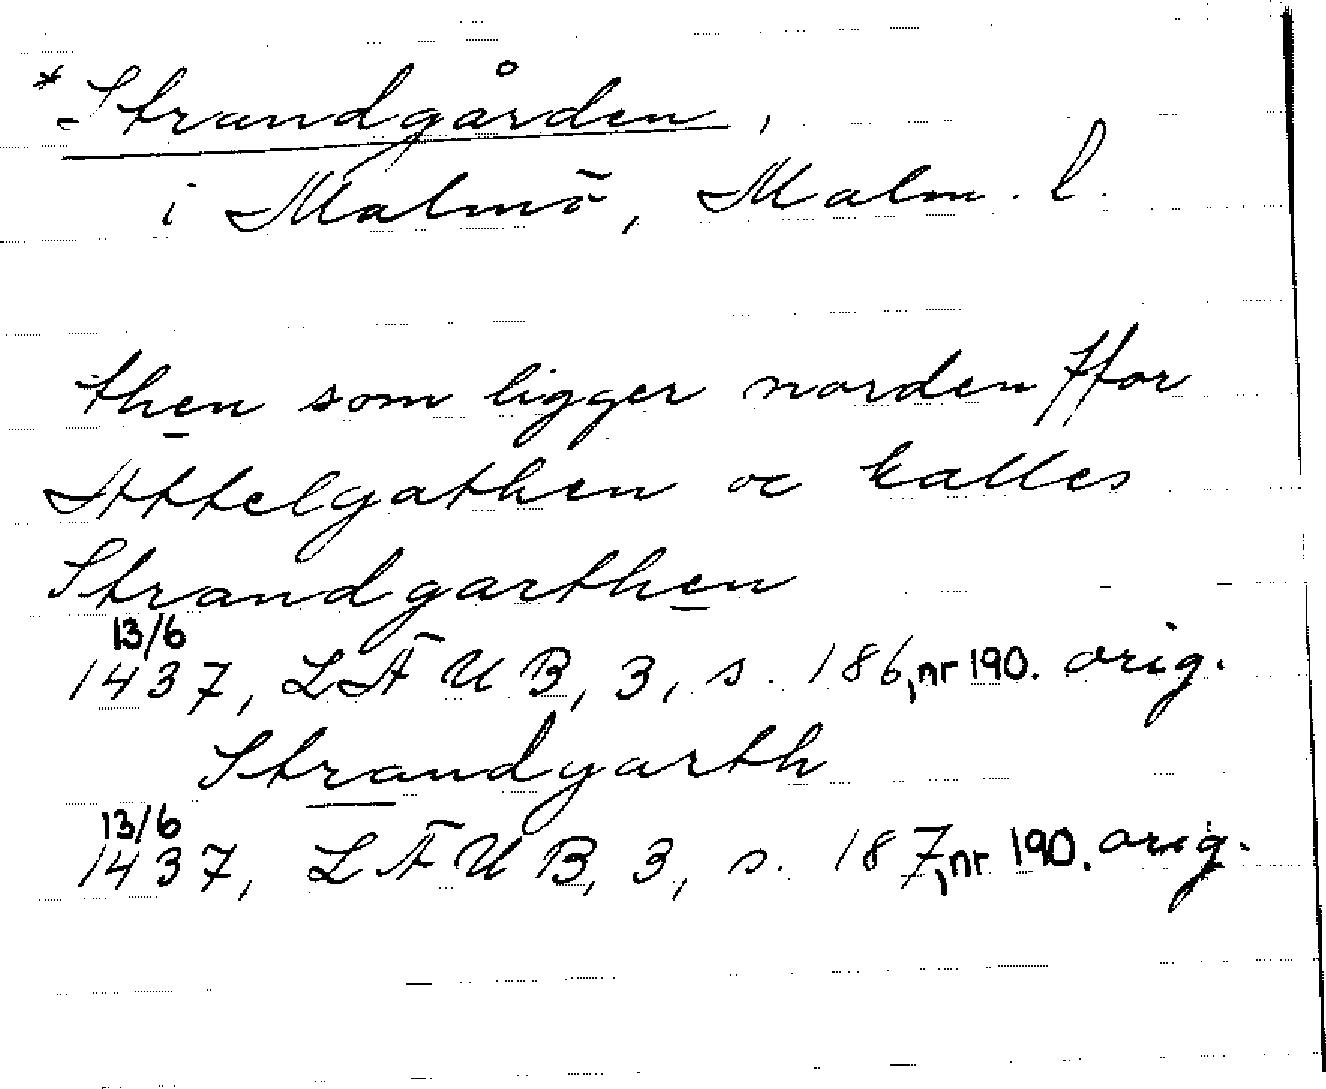 *Strandgården,
i Malmö, Malm. l.
then som ligger norden ffor
Attelgathen oc kalles
Strandgarthen
13/6
1437, LÄUB, 3, s. 186, nr 190. orig.
Strandgarth
13/6
1437, LÄUB, 3, s. 187, nr 190. orig.